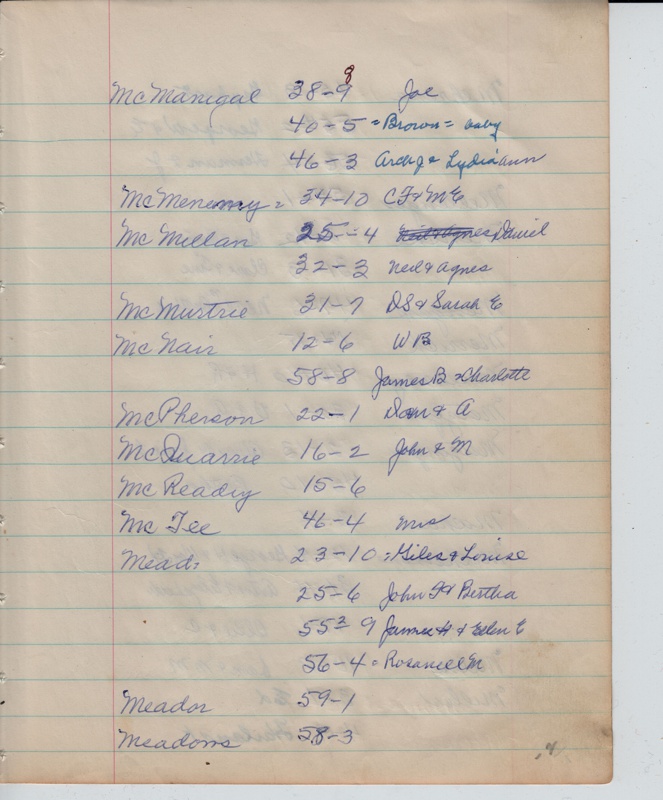 8
McManigal 38-9 Joe
40-5 = Brown = baby
46-3 Arch J & Lydia ann
McMenemy = 34-10 CF & ME
McMillan 25-4 Ned & Agnes Daniel
32-3 Ned & Agnes
McMurtrie 31-7 DS & Sarah E
McNair 12-6 WB
58-8 James B & Charlotte
McPherson 22-1 & A
McQuarrie 16-2 John & M
McReady 15-6
McTee 46-4 Mrs
Mead: 23-10 Giles & Louise
25-6 John F & Bertha
55-9 James H & Ellen E
56-4 M
Meador 59-1
Meadows 58-3